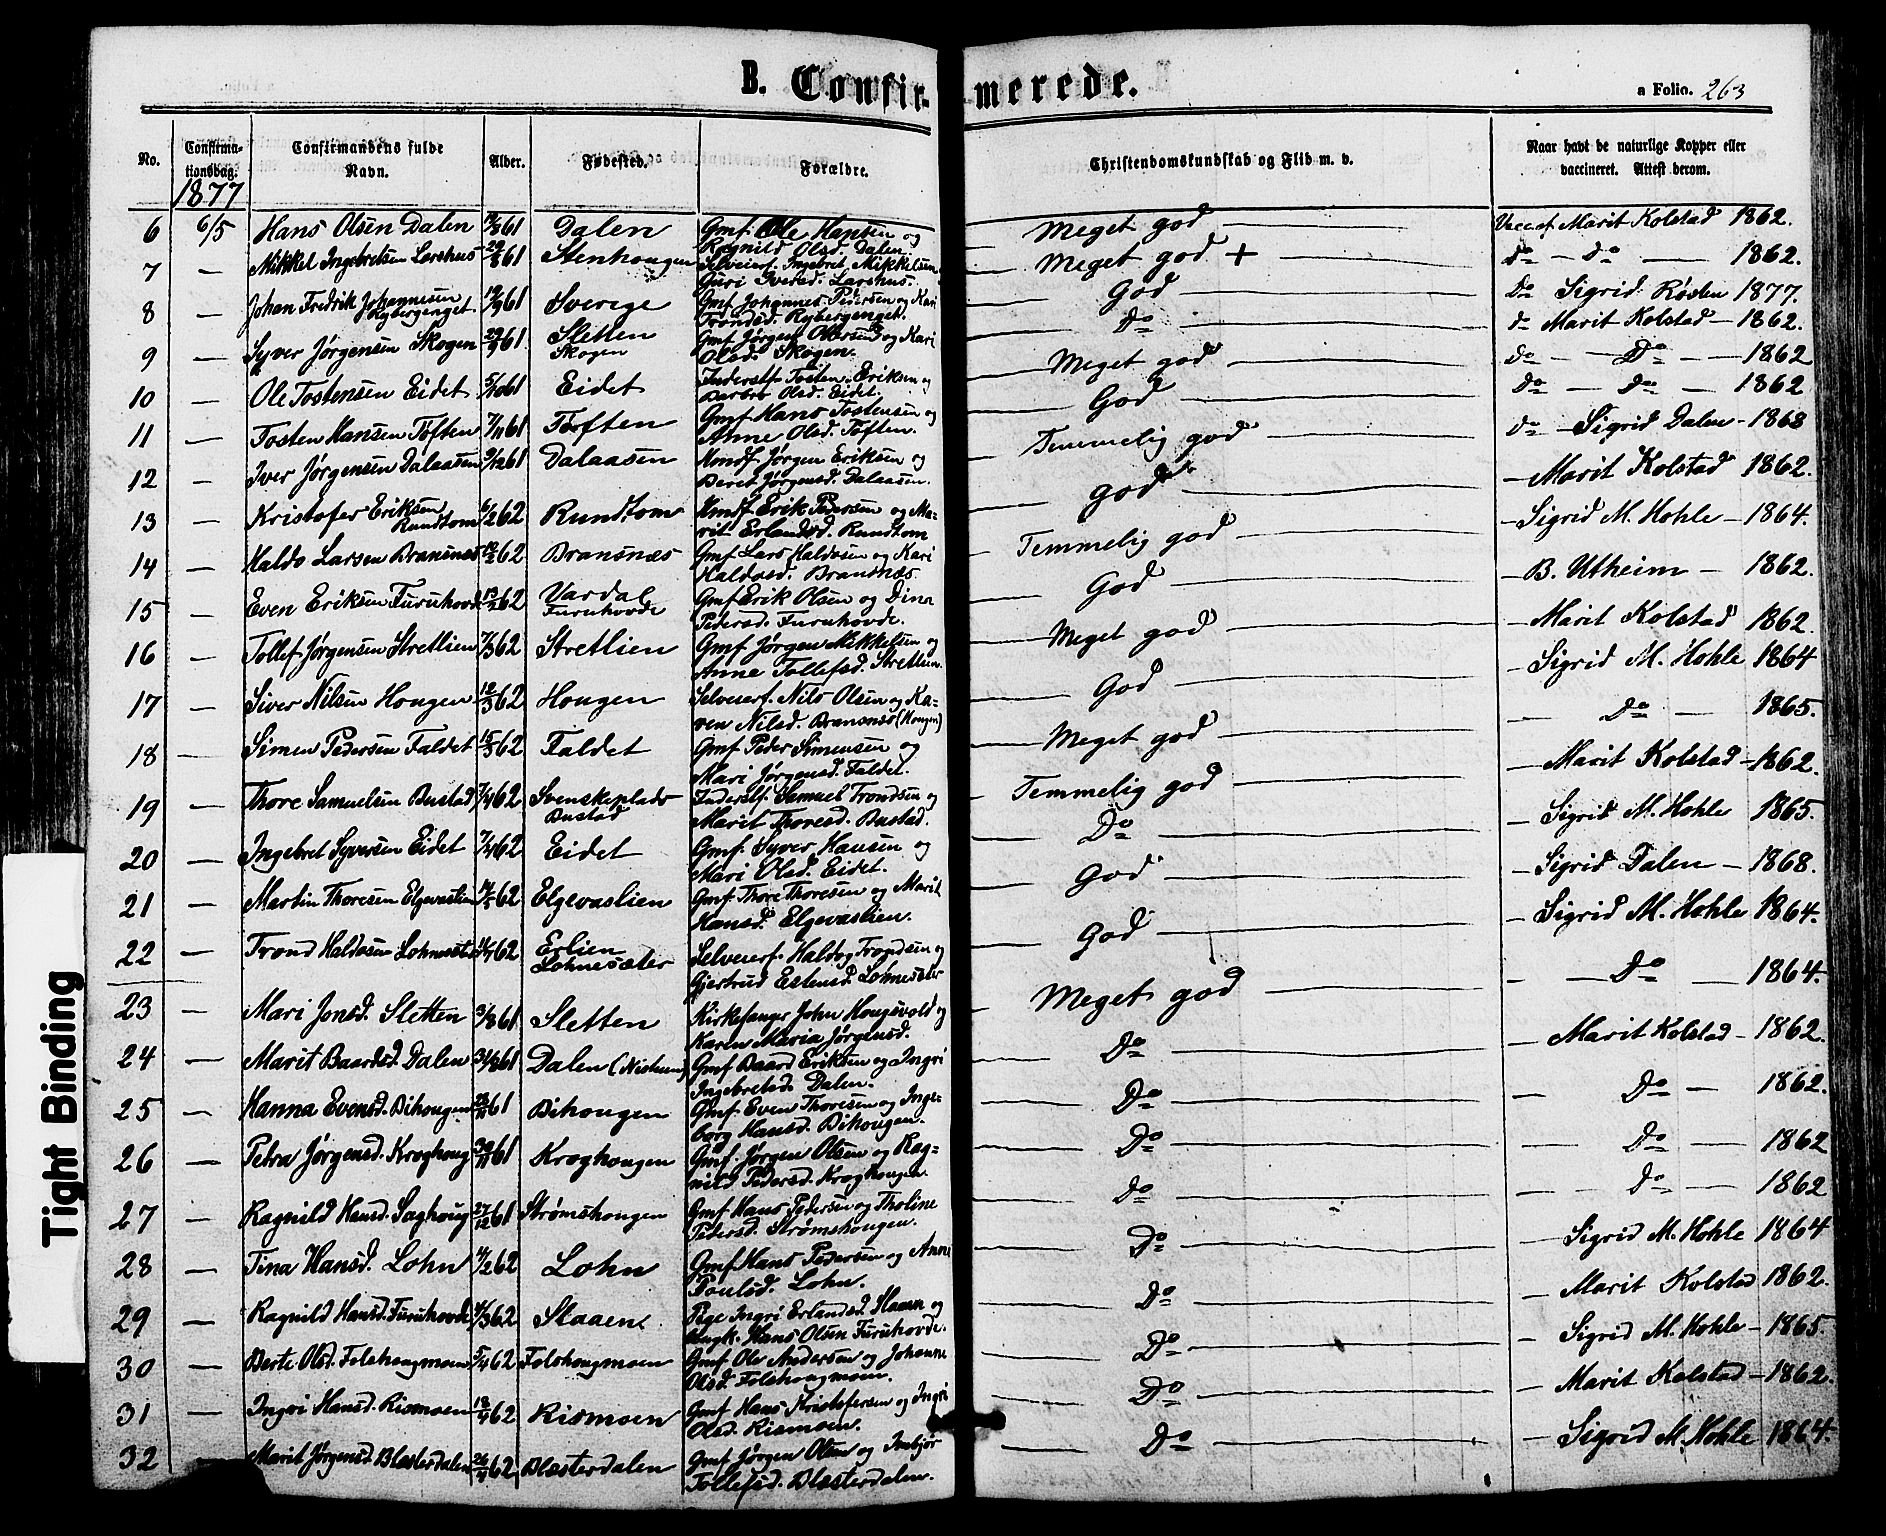 B. Confir-merede.
a Folio. 263
No. Confirma-tionsdag. Confirmandens fulde Navn. Alder. Fødested. Forældre. Christendomskundskab og Flid m. v. Naar havt de naturlige Kopper eller vaccineret. Attest derom.
1877
6 6/5 Hans Olsen Dalen 61 Dalen Gmf. Ole Hansen og Ragnild Olsd. Dalen Meget god Vacc. af Marit Kolstad 1862.
7 — Mikkel Ingebretsen Larshus 61 Stenhougen Selveierf. Ingebrit Mikkelsen Guri Iversd. Larshus. Meget god + Do — Do — 1862.
8 — Johan Fredrik Johannesen Rybergenget 61 Sverige Gmf. Johannes Pedersen og Kari Trondsd. Rybergenget. God Do Sigrid Røsten 1877.
9 — Syver Jørgensen Skogen 29/9 61 Sletten Skogen Gmf Jørgen og Kari Olsd. Skogen. Do Do Marit Kolstad — 1862.
10 — Ole Tostensen Eidet 5/10 61 Eidet Inderstf. Tosten Eriksen og Barbro Olsd. Eidet. Meget god Do — Do — 1862
11 — Tosten Hansen Toften 7/11 61 Toften Gmf. Hans Tostensen og Anne Olsd. Toften. God Do — Do — 1862
12 — Iver Jørgensen Dalaasen 61 Dalaasen Hmdf. Jørgen Eriksen og Beret Jørgensd. Dalaasen. Temmelig god Do — Sigrid Dalen — 1868
13 — Kristofer Eriksen Rundtom 6/2 62 Rundtom Hmdf. Erik Pedersen og Ma-rit Erlandsd. Rundtom God — Marit Kolstad 1862.
14 — Haldo Larsen Bransnæs 62 Bransnæs Gmf. Lars Haldosen og Kari Haldosd. Bransnæs. Temmelig god — Sigrid M. Hohle — 1864.
15 — Even Eriksen Furuhovde 62 Vardal Furuhovde Gmf Erik Olsen og Dina Pedersd. Furuhovde. God — B. Utheim — 1862.
16 — Tollef Jørgensen Stretlien 7/3 62 Stretlien Gmf. Jørgen Mikkelsen og Anne Tollefsd. Stretlien. Meget god — Marit Kolstad 1862.
17 — Siver Nilsen Hougen 62 Hougen Selveierf. Nils Olsen og Ka-ren Nilsd. Bransnæs (Hougen) God — Sigrid M. Hohle 1864
18 — Simen Pedersen Faldet 15/3 62 Faldet Gmf Peder Simensen og Mari Jørgensd. Faldet. Meget god — Do — 1865.
19 — Thore Samuelsen Bustad 7/4 62 Svenskeplads Bustad Inderstf. Samuel Trondsen og Marit Thoresd. Bustad. Temmelig god — Marit Kolstad — 1862.
20 — Ingebret Syversen Eidet 7/4 62 Eidet Gmf. Syver Hansen og Mari Olsd. Eidet. Do — Sigrid M. Hohle 1865.
21 — Martin Thoresen Elgevaslien 62 Elgevaslien Gmf. Thore Thoresen og Marit Hansd. Elgevaslien. God — Sigrid Dalen — 1868.
22 — Trond Haldosen Lohnesæter 62 Erlien Lohnesæter Selveierf. Haldo Trondsen og Gjertrud Estensd. Lohnesæter God — Sigrid M. Hohle 1864.
23 — Mari Jonsd. Sletten 3/8 61 Sletten Kirkesanger John Hougsvold og Karen Maria Jørgensd. Meget god — Do — 1864.
24 — Marit Baardsd. Dalen 61 Dalen (Nistuen) Gmf Baard Eriksen og Ingri Ingebretsd. Dalen. Do — Marit Kolstad — 1862.
25 — Hanna Evensd. Bihougen 61 Bihougen Gmf Even Thoresen og Inge-borg Hansd. Bihougen. Do — Do — 1862.
26 — Petra Jørgensd. Kroghoug 61 Kroghougen Gmf. Jørgen Olsen og Rag-nild Pedersd. Kroghougen. Do — Do — 1862
27 — Ragnild Hansd. Saghoug 27/12 61 Strømshougen Gmf Hans Pedersen og Tholine Pedersd. Strømshougen. Do — Do — 1862
28 — Tina Hansd. Lohn 62 Lohn Gmf. Hans Pedersen og Anne Poulsd. Lohn. Do — Sigrid M. Hohle 1864
29 — Ragnild Hansd. Furuhovde 62 Slaaen Pige Ingri Erlandsd. Slaaen og Ungk. Hans Olsen Furuhovde. Do — Marit Kolstad 1862.
30 — Berte Olsd. Folshougmoen 5/4 62 Folshougmoen Gmf Ole Andersen og Johanne Olsd. Folshougmoen. Do — Sigrid M. Hohle — 1865.
31 — Ingri Hansd. Rismoen 18/4 62 Rismoen Gmf Hans Kristofersen og Ingri Olsd. Rismoen. Do — Marit Kolstad — 1862.
32 Marit Jørgensd Blæsterdalen 62 Blæsterdalen Gmf Jørgen Olsen og Imbjør Tollefsd. Blæsterdalen. Do — Sigrid M. Hohle 1864.
Tight Binding